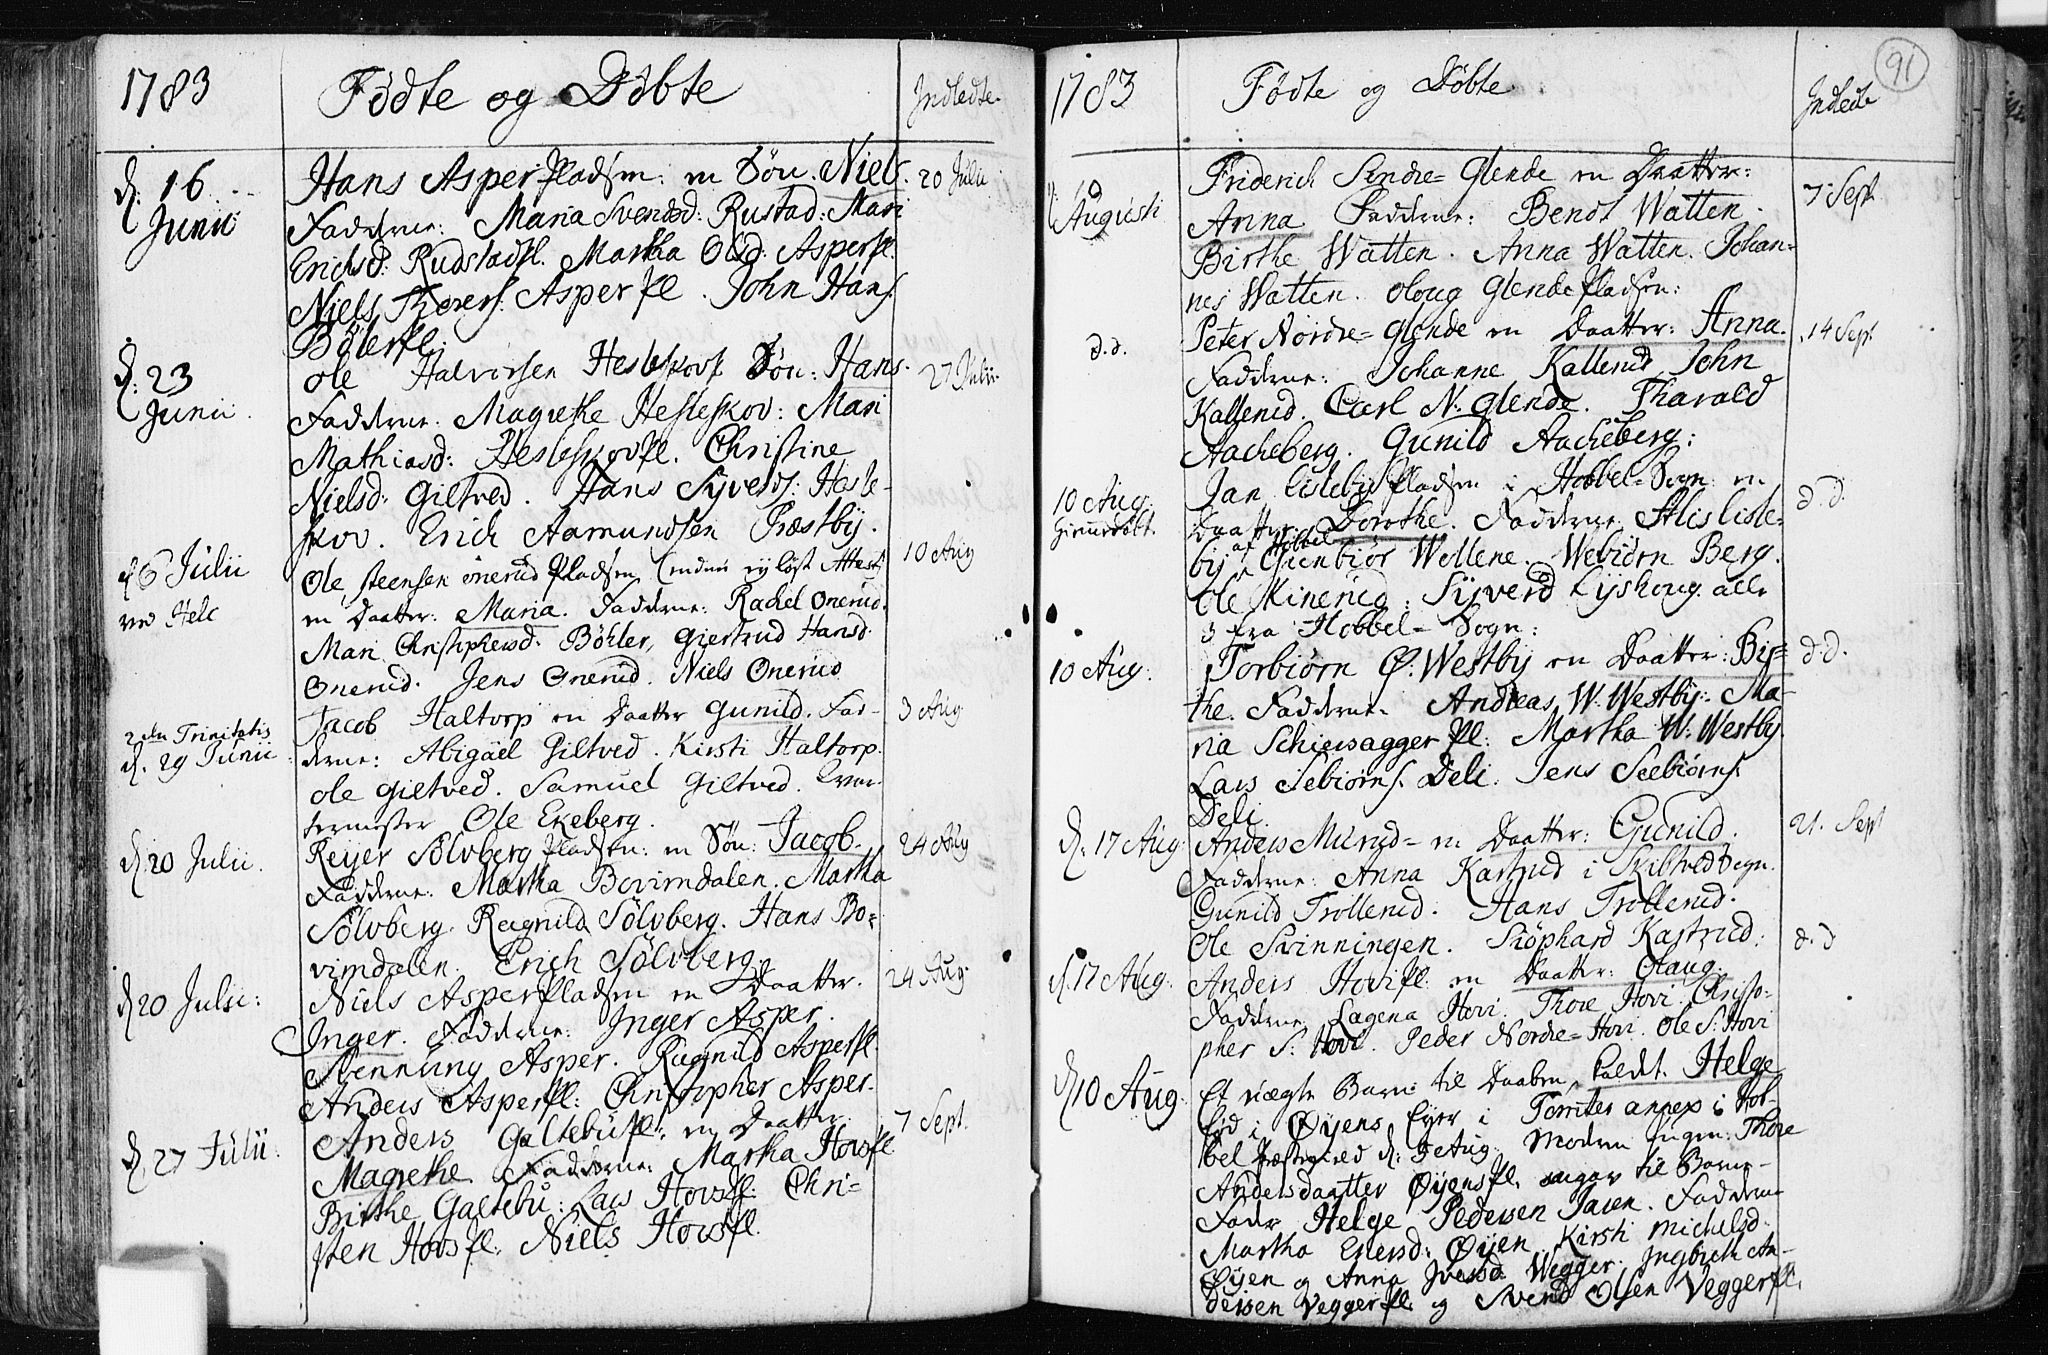 1783 Födte og Döbte Indledte
d: 16 Junii
Hans Asper Pladsen: en Sön. Niels. 20 Julii
Fadderne: Maria Svendsd: Rustad: Mari
Erichsd: Rudstadpl. Martha Olsd: Asperpl.
Niels Thoress: Asperpl. John Hans:
Bölerpl.
d: 23 Junii
Ole Halvorsen Hesleskovs Sön: Hans. 27 Julii.
Fadderne. Magrethe Hesleskov: Mari
Mathiasd: Hesleskovpl. Christine
Nielsd: Giltved. Hans Syvers: Hesle-
skov. Erich Aamundsen Præstby.
d 6 Julii
Ole Steensen Onerud Pladsen 10 Aug
en Daatter: Maria. Fadderne: Rachel Onerud.
Mari Christophersd. Böhler, Giertrud Hansd.
Onerud. Jens Onerud. Niels Onerud
2den Trinitatis
d. 29 Junii
Jacob Haltorp en Daatter Gunild. Fad- 3 Aug.
derne: Abigäel Giltved. Kirsti Haltorp.
Ole Giltved. Samuel Giltved. Qvar-
termester Ole Ekeberg.
d 20 Julii.
Reyer Sölvberg Pladsen: en Sön: Jacob. 24 Aug
Fadderne: Martha Bovimdalen. Martha
Sölvberg. Ragnild Sölvberg. Hans Bo-
vimdalen. Erich Sölvberg.
d 20 Julii:
Niels Asper Pladsen en Daatter. 24 Aug.
Inger. Fadderne: Inger Asper.
Svennung Asper. Ragnild Asperpl.
Anders Asperpl: Christopher Asper.
d. 27 Julii.
Anders Galtebupl: en Daatter: 7 Sept.
Magrethe. Fadderne: Martha Hovspl
Birthe Galtebu: Lars Hovspl: Chri-
sten Hovspl. Niels Hovspl.
91
1783 Födte og Döbte Indledte
Augusti
Friderich Söndre-Glende en Daatter: 7 Sept
Anna Fadderne: Bendt Watten.
Birthe Watten. Anna Watten. Johan-
nes Watten. Oloug Glende Pladsen:
d.d.
Peter Nordre-Glende en Daatter: Anna. 14 Sept
Fadderne: Johanne Kallerud, John
Kallerud. Carl N. Glende. Tharald
Aacheberg. Gunild Aacheberg:
10 Aug.
Jan Lisleby Pladsen i Hobbel-Sogn: en d.d.
Daatter: Dorothe. Fadderne: Alis Lisle-
af Hobbel
by Gunbiör Wollene. Webiörn Berg.
Ole Kinerud. Syverd Lyshoug alle
3 fra Hobbel-Sogn:
10 Aug.
Torbiörn Ö. Westby en Daatter: Bir- d.d.
the. Fadderne. Andreas W. Westby: Ma-
ria pl: Martha W. Westby.
Lars Sebiörns. Deli. Jens Seebiörns:
Deli.
d. 17 Aug.
Anders Murud- en Daatter: Gunild. 21. Sept
Fadderne: Anna Kastrud i Skibtved Sogn.
Gunild Trollerud. Hans Trollerud.
Ole Svinningen. Kastrud. d.d
d. 17 Aug.
Anders Hovipl. en Daatter: Olaug.
Fadderne. Lagena Hovi. Thore Hovi. Christo-
pher S: Hovi. Peder Nordre-Hovi. Ole S: Hovi
d 10 Aug.
Et uægte Barn til Daaben kaldt. Helge
föd i Öyens Eyer i Tomter annex i Hob-
bel Præstegield d: 5 Aug. Moderen Ingen: Thore
Andersdaatter Öyenspl. angav til Barne-
Fader Helge Pedersen Faderne
Martha Enersd: Öyen Kirsti Michelsd.
Öyen og Anna Iversd Wegger. Ingbreth An-
dersen Veggerpl. og Svend Olsen Veggerpl.